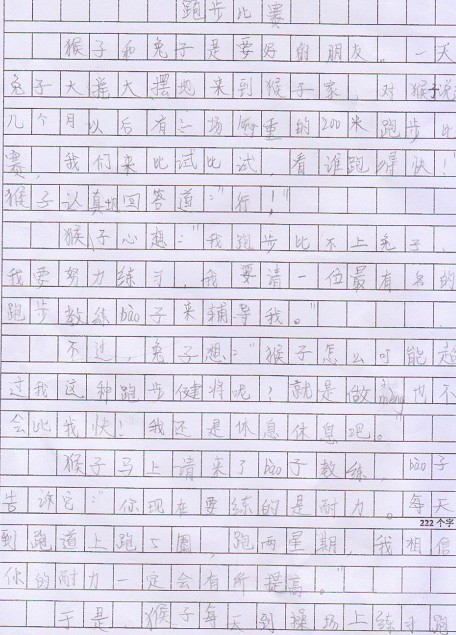 跑步比赛
猴子和兔子是要好的朋友。一天
兔子大摇大摆地来到猴子家，对猴子说
几个月以后有一场隆重的200米跑步比
赛，我们来比试比试，看谁跑得快！"
猴子认真地回答道："行！"
猴子心想："我跑步比不上兔子，
我要努力练习，我要请一位最有名的
跑步教练bào子来辅导我。"
不过，兔子想："猴子怎么可能超
过我这种跑步健将呢？就是做mèng也不
会比我快！我还是休息休息吧。
猴子马上请来了bào子教练，bào子
告诉它："你现在要练的是耐力。每天
222个字
到跑道上跑5圈，跑两星期，我相信
你的耐力一定会有所提高。"
于是，猴子每天到操场上练习跑